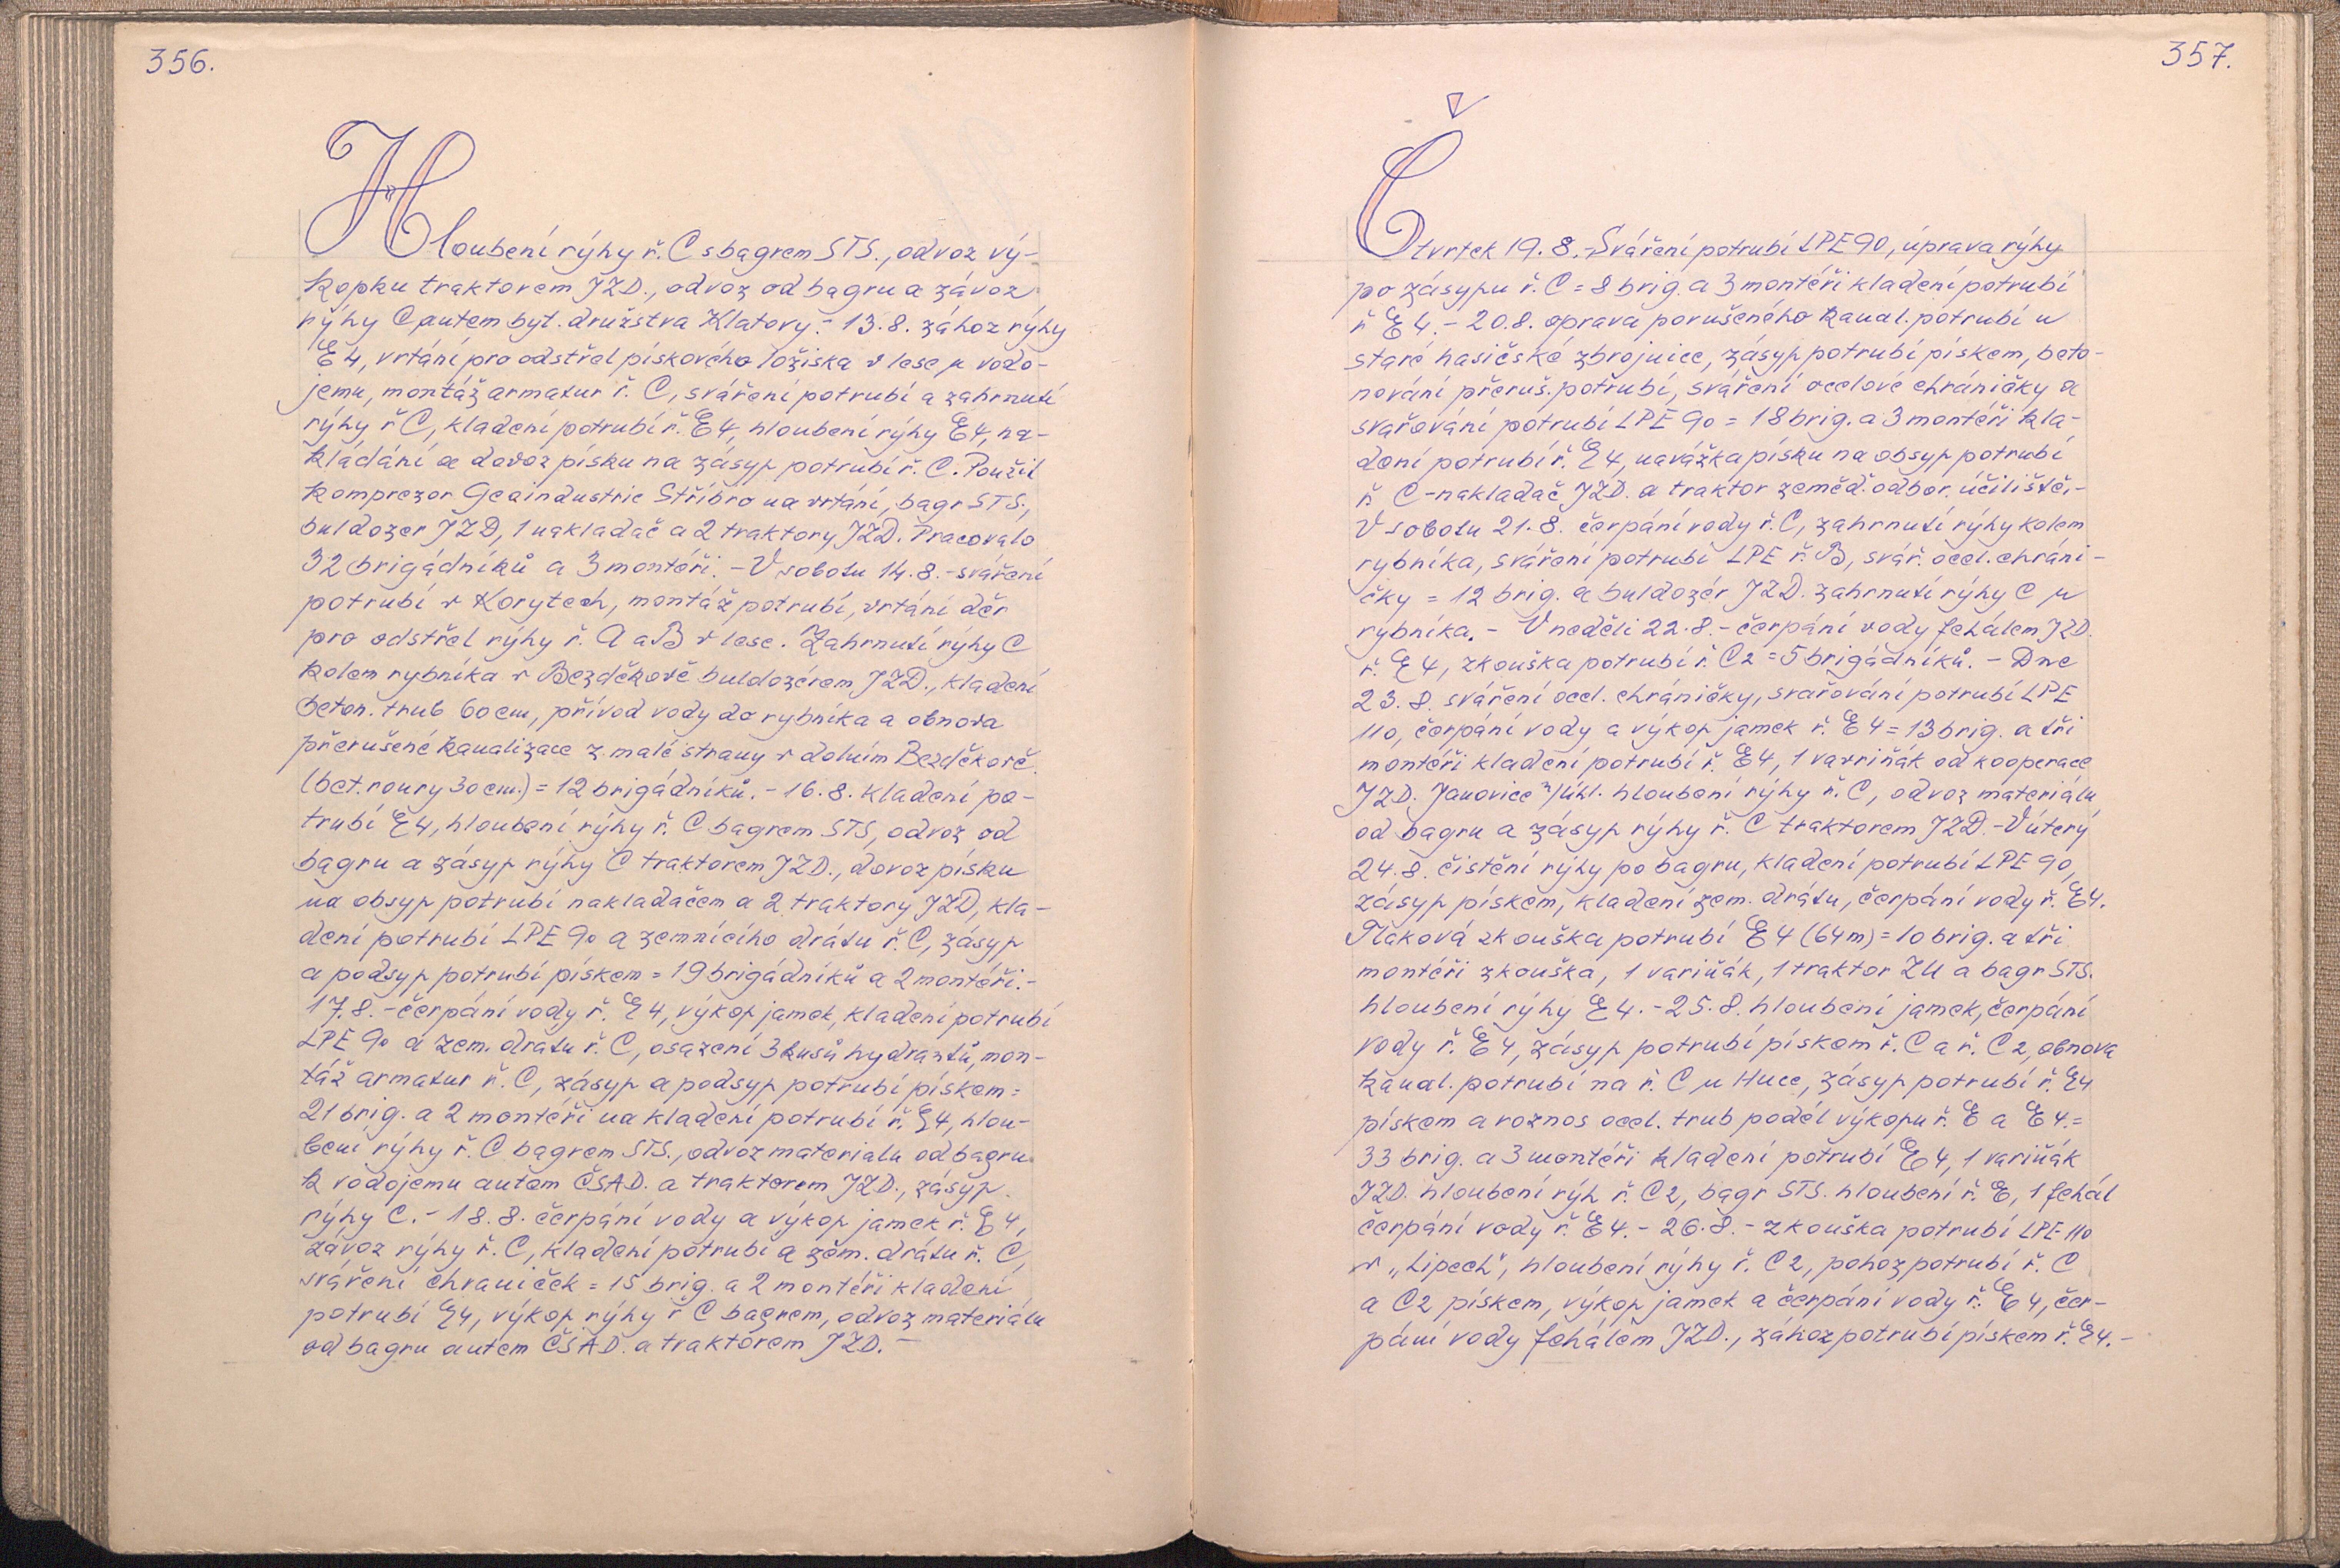 356.
Hloubení rýhy ř. C s bagrem STS., odvoz vý-
kopku traktorem JZD., odvoz od bagru a závoz
rýhy C autem byt. družstva Klatovy.- 13.8. zához rýhy
E4, vrtání pro odstřel pískového ložiska v lese u vodo-
jemu, montáž armatur ř. C, sváření potrubí a zahrnutí
rýhy ř C, kladení potrubí ř. E4, hloubení rýhy E4, na-
kládání a dovoz písku na zásyp potrubí ř. C. Použil
kompresor Geaindustrie Stříbro na vrtání, bagr STS.,
buldozer JZD, 1 nakladač a 2 traktory JZD. Pracovalo
32 brigádníků a 3 montéři. - V sobotu 14.8. - sváření
potrubí v Korytech, montáž potrubí, vrtání děr
pro odstřel rýhy ř. A a B v lese. Zahrnutí rýhy C
kolem rybníka v Bezděkově buldozérem JZD., kladení
beton. trub 60 cm, přívod vody do rybníka a obnova
přerušené kanalizace z malé strany v dolním Bezděkově
(bet. roury 30 cm.) = 12 brigádníků. - 16.8. kladení po-
trubí E4, hloubení rýhy ř. C bagrem STS, odvoz od
bagru a zásyp rýhy C traktorem JZD., dovoz písku
na obsyp potrubí nakladačem a 2 traktory JZD, kla-
dení potrubí LPE 90 a zemnícího drátu ř. C, zásyp
a podsyp potrubí pískem = 19 brigádníků a 2 montéři.-
17.8. - čerpání vody ř. E4, výkop jamek, kladení potrubí
LPE 90 a zem. dratu ř. C, osazení 3 kusů hydrantů, mon-
táž armatur ř. C, zásyp a podsyp potrubí pískem =
21 brig. a 2 montéři na kladení potrubí ř. E4, hlou-
bení rýhy ř. C bagrem STS., odvoz materialu od bagru
k vodojemu autem ČSAD. a traktorem JZD., zásyp
rýhy C. - 18.8. čerpání vody a výkop jamek ř. E4,
závoz rýhy ř. C, kladení potrubí a zem. drátu ř. C,
sváření chraniček = 15 brig. a 2 montéři kladení
potrubí E4, výkop rýhy ř C bagrem, odvoz materiálu
od bagru autem ČSAD. a traktorem JZD. -
357.
Čtvrtek 19.8.- Sváření potrubí LPE 90, úprava rýhy
po zásypu ř. C = 8 brig. a 3 montéři kladení potrubí
ř E4. - 20.8. oprava porušeného kanal. potrubí u
staré hasičské zbrojnice, zásyp potrubí pískem, beto-
nování přeruš. potrubí, sváření ocelové chráničky a
svařování potrubí LPE 90 = 18 brig. a 3 montéři kla-
dení potrubí ř. E4, navážka písku na obsyp potrubí
ř. C - nakladač JZD. a traktor zeměd. odbor. účiliště.-
V sobotu 21.8. čerpání vody ř. C, zahrnutí rýhy kolem
rybníka, sváření potrubí LPE ř. B, svář. ocel. chráni-
čky = 12 brig. a buldozér JZD. zahrnutí rýhy C u
rybníka. - V neděli 22.8. - čerpání vody fekálem JZD.
ř. E4, zkouška potrubí ř. C2 = 5 brigádníků. - Dne
23.8. sváření ocel. chráničky, svařování potrubí LPE
110, čerpání vody a výkop jamek ř. E4 = 13 brig. a tři
montéři kladení potrubí ř. E4, 1 varriňák od kooperace
JZD. Janovice n/úhl. hloubení rýhy ř. C, odvoz materiálu
od bagru a zásyp rýhy ř. C traktorem JZD. - V úterý
24.8. čistění rýhy po bagru, kladení potrubí LPE 90,
zásyp pískem, kladení zem. drátu, čerpání vody ř. E4.
Tlaková zkouška potrubí E4 (64 m) = 10 brig. a tři
montéři zkouška, 1 variňák, 1 traktor ZU a bagr STS.
hloubení rýhy E4. - 25.8. hloubení jamek, čerpání
vody ř. E4, zásyp potrubí pískem ř. C a ř. C2, obnova
kanal. potrubí na ř. C u Huce, zásyp potrubí ř. E4
pískem a roznos ocel. trub podél výkopu ř. E a E4. =
33 brig. a 3 montéři kladení potrubí E4, 1 variňák
JZD. hloubení rýh ř. C2, bagr STS. hloubení ř. E, 1 fekál
čerpání vody ř. E4. - 26.8. - zkouška potrubí LPE 110
v „Lipech", hloubení rýhy ř. C2, pohoz potrubí ř. C
a C2 pískem, výkop jamek a čerpání vody ř. E4, čer-
pání vody fekálem JZD., zához potrubí pískem ř. E4. -